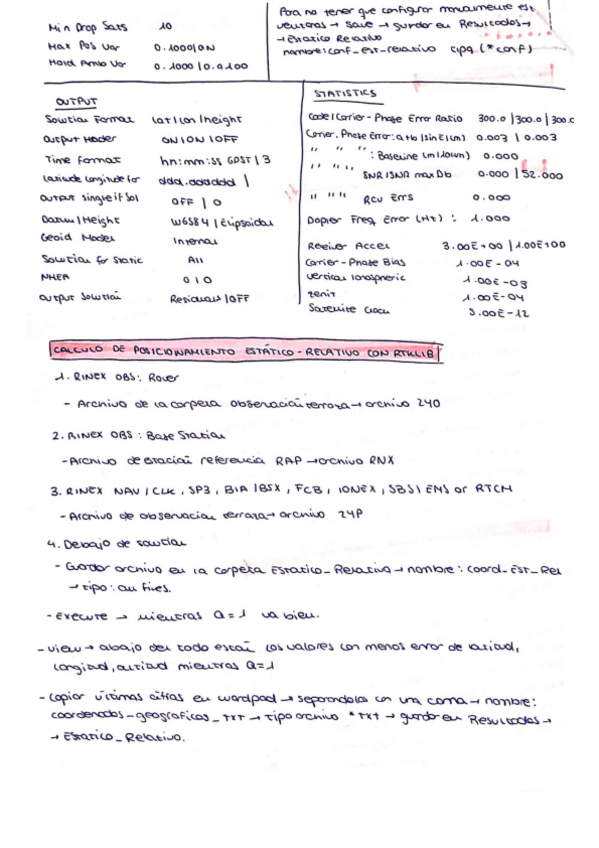 Min Drop Sats 10
Max Pos Var 0.1000|ON
Hold Amb Var 0.1000|0.0100
Para no tener que configurar manualmente est
ventanas → save → guardar en Resultados →
→ Estatico Relativo
nombre: conf_est-relativo tipo (*conf)
OUTPUT
Solution Format lat|lon|height
Output Header ON|ON|OFF
Time Format hh:mm:ss GPST|3
Latitude Longitude for ddd.ddddddd |
Output single if Sol OFF | 0
Datum|Height WGS84 | Elipsoidal
Geoid Model Internal
Solution for Static All
NMEA 0|0
Output Solution Residuals|OFF
STATISTICS
Code|Carrier-Phase Error Ratio 300.0|300.0|300.0
Carrier. Phase Error: a+b|sin E(m) 0.003 | 0.003
" " " : Baseline (m|10km) 0.000
" " " SNR|SNR max Db 0.000 | 52.000
" " " RCV Errs 0.000
Dopler Freq Error (Hz) : 1.000
Receiver Accel 3.00E+00|1.00E+00
Carrier-Phase Bias 1.00E-04
vertical Ionospheric 1.00E-03
zenit 1.00E-04
Satellite Clock 5.00E-12
CALCULO DE POSICIONAMIENTO ESTÁTICO-RELATIVO CON RTKLIB
1. RINEX OBS: Rover
- Archivo de la carpeta observación terraza → archivo 24O
2. RINEX OBS : Base Station
- Archivo de estación referencia RAP → archivo RNX
3. RINEX NAV|CLK, SP3, BIA|BSX, FCB, IONEX, SBS|EMS or RTCM
- Archivo de observacion terraza → archivo 24P
4. Debajo de solution
- Guardar archivo en la carpeta Estatico_Relativo → nombre: coord_Est_Rel
→ tipo: all files.
- Execute → mientras Q=1 va bien.
- view → abajo del todo están los valores con menos error de latitud,
longitud, altitud mientras Q=1
- Copiar últimas cifras en wordpad → separandolas con una coma → nombre:
coordenadas-geograficas_txt → tipo archivo *txt → guardar en Resultados →
→ Estatico_Relativo.